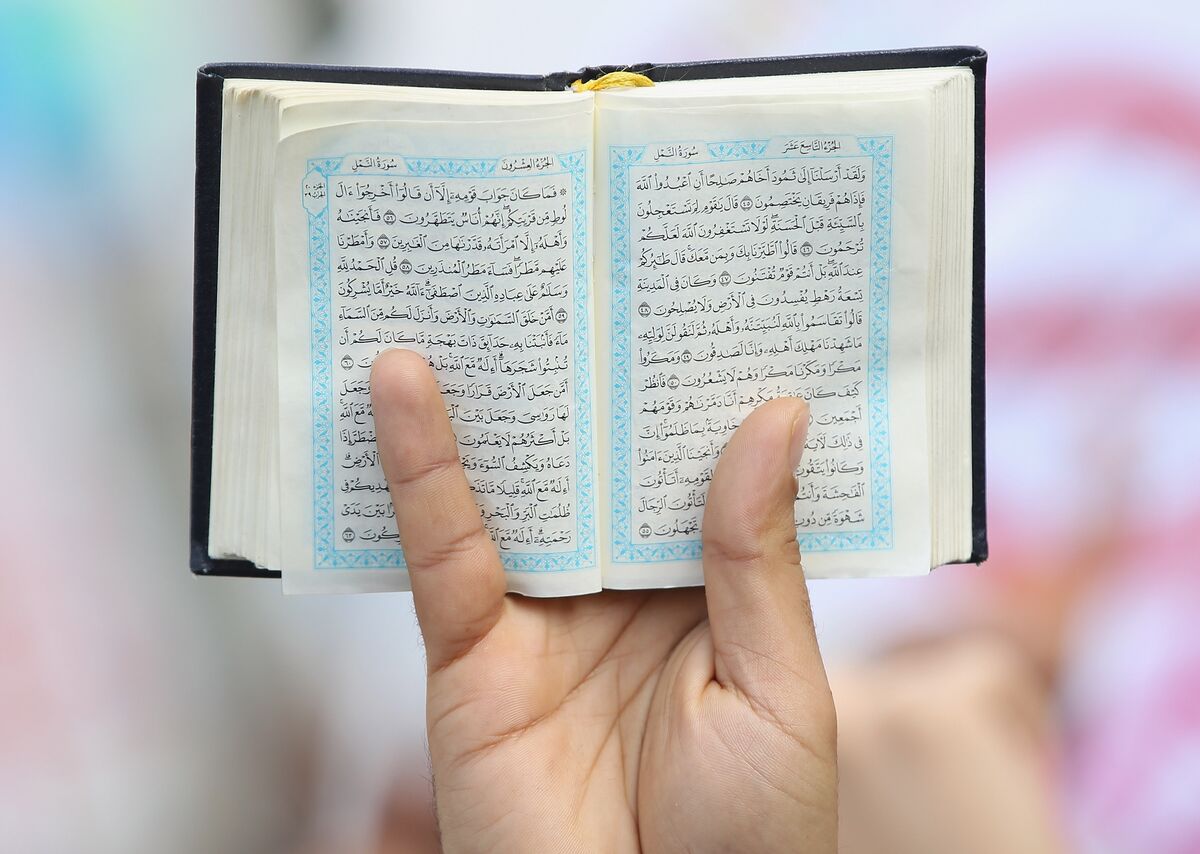 الجُزْءُ التَّاسِعَ عَشَرَ سُورَةُ النَّمْلِ
وَلَقَدْ أَرْسَلْنَآ إِلَىٰ ثَمُودَ أَخَاهُمْ صَٰلِحًا أَنِ ٱعْبُدُوا۟ ٱللَّهَ
فَإِذَا هُمْ فَرِيقَانِ يَخْتَصِمُونَ ٤٥ قَالَ يَٰقَوْمِ لِمَ تَسْتَعْجِلُونَ
بِٱلسَّيِّئَةِ قَبْلَ ٱلْحَسَنَةِ ۖ لَوْلَا تَسْتَغْفِرُونَ ٱللَّهَ لَعَلَّكُمْ
تُرْحَمُونَ ٤٦ قَالُوا۟ ٱطَّيَّرْنَا بِكَ وَبِمَن مَّعَكَ ۚ قَالَ طَٰٓئِرُكُمْ
عِندَ ٱللَّهِ ۖ بَلْ أَنتُمْ قَوْمٌ تُفْتَنُونَ ٤٧ وَكَانَ فِى ٱلْمَدِينَةِ
تِسْعَةُ رَهْطٍ يُفْسِدُونَ فِى ٱلْأَرْضِ وَلَا يُصْلِحُونَ ٤٨
قَالُوا۟ تَقَاسَمُوا۟ بِٱللَّهِ لَنُبَيِّتَنَّهُۥ وَأَهْلَهُۥ ثُمَّ لَنَقُولَنَّ لِوَلِيِّهِۦ
مَا شَهِدْنَا مَهْلِكَ أَهْلِهِۦ وَإِنَّا لَصَٰدِقُونَ ٤٩ وَمَكَرُوا۟
مَكْرًا وَمَكَرْنَا مَكْرًا وَهُمْ لَا يَشْعُرُونَ ٥٠ فَٱنظُرْ
كَيْفَ كَانَ مَكْرِهِمْ أَنَّا دَمَّرْنَٰهُمْ وَقَوْمَهُمْ
أَجْمَعِينَ خَاوِيَةًۢ بِمَا ظَلَمُوٓا۟ ۗ إِنَّ
فِى ذَٰلِكَ لَءَايَةً وَأَنجَيْنَا ٱلَّذِينَ ءَامَنُوا۟
وَكَانُوا۟ يَتَّقُونَ لِقَوْمِهِۦٓ أَتَأْتُونَ
ٱلْفَٰحِشَةَ وَأَنتُمْ لَتَأْتُونَ ٱلرِّجَالَ
شَهْوَةً مِّن دُونِ تَجْهَلُونَ ٥٥
الجُزْءُ العِشْرُونَ سُورَةُ النَّمْلِ
۞ فَمَا كَانَ جَوَابَ قَوْمِهِۦٓ إِلَّآ أَن قَالُوٓا۟ أَخْرِجُوٓا۟ ءَالَ
لُوطٍ مِّن قَرْيَتِكُمْ ۖ إِنَّهُمْ أُنَاسٌ يَتَطَهَّرُونَ ٥٦ فَأَنجَيْنَٰهُ
وَأَهْلَهُۥٓ إِلَّا ٱمْرَأَتَهُۥ قَدَّرْنَٰهَا مِنَ ٱلْغَٰبِرِينَ ٥٧ وَأَمْطَرْنَا
عَلَيْهِم مَّطَرًا ۖ فَسَآءَ مَطَرُ ٱلْمُنذَرِينَ ٥٨ قُلِ ٱلْحَمْدُ لِلَّهِ
وَسَلَٰمٌ عَلَىٰ عِبَادِهِ ٱلَّذِينَ ٱصْطَفَىٰٓ ۗ ءَآللَّهُ خَيْرٌ أَمَّا يُشْرِكُونَ
٥٩ أَمَّنْ خَلَقَ ٱلسَّمَٰوَٰتِ وَٱلْأَرْضَ وَأَنزَلَ لَكُم مِّنَ ٱلسَّمَآءِ
مَآءً فَأَنۢبَتْنَا بِهِۦ حَدَآئِقَ ذَاتَ بَهْجَةٍ مَّا كَانَ لَكُمْ أَن
تُنۢبِتُوا۟ شَجَرَهَآ ۗ أَءِلَٰهٌ مَّعَ ٱللَّهِ ۚ بَلْ ٦٠
أَمَّن جَعَلَ ٱلْأَرْضَ قَرَارًا وَجَعَلَ وَجَعَلَ
لَهَا رَوَٰسِىَ وَجَعَلَ بَيْنَ مَّعَ ٱللَّهِ ۚ
بَلْ أَكْثَرُهُمْ لَا يَعْلَمُونَ إِذَا
دَعَاهُ وَيَكْشِفُ ٱلسُّوٓءَ ٱلْأَرْضِ ۗ
أَءِلَٰهٌ مَّعَ ٱللَّهِ ۚ قَلِيلًا مَّا فِى
ظُلُمَٰتِ ٱلْبَرِّ وَٱلْبَحْرِ بَيْنَ يَدَىْ
رَحْمَتِهِۦٓ ۗ أَءِلَٰهٌ مَّعَ ٦٣